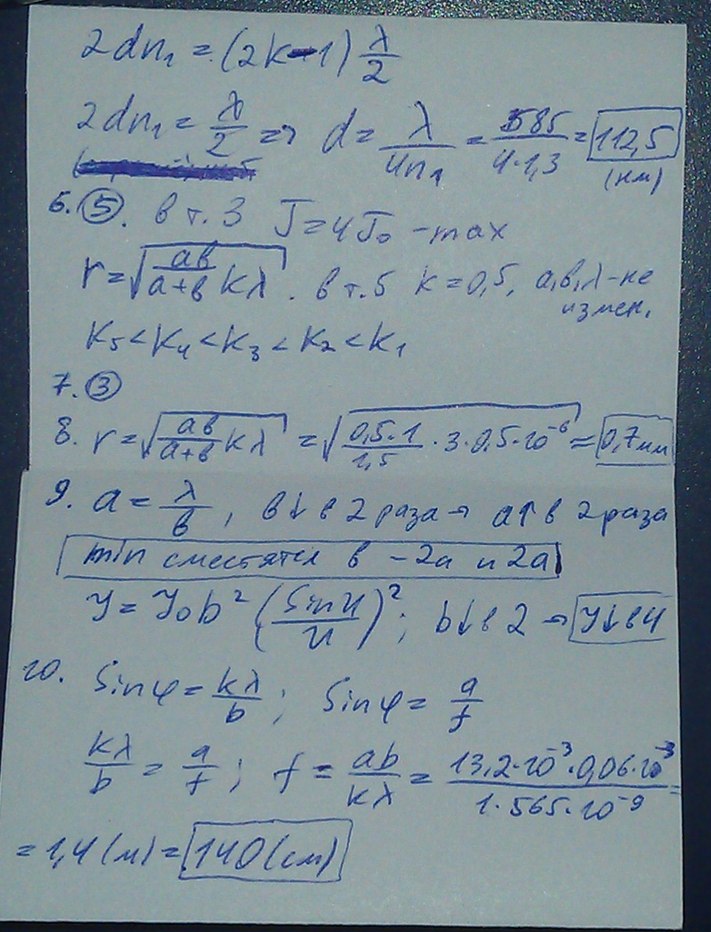 2dn₁ = (2k-1) λ/2
2dn₁ = λ/2 => d = λ/4n₁ = 585/4·1,3 = 112,5 (нм)
6. 5. в т. 3 J = 4J₀ - max
r = √(ab/(a+b) kλ). в т. 5 k = 0,5, a, b, λ - не измен.
k₅ < k₄ < k₃ < k₂ < k₁
7. 3
8. r = √(ab/(a+b) kλ) = √(0,5·1/1,5 · 3·0,5·10⁻⁶) = 0,7 мм
9. a = λ/b, b↓ в 2 раза → a↑ в 2 раза
min сместятся в -2a и 2a
J = J₀b² (sin u/u)²; b↓ в 2 → J↓ в 4
10. Sin φ = kλ/b; Sin φ = a/f
kλ/b = a/f; f = ab/kλ = 13,2·10⁻³·0,06·10⁻³/1·565·10⁻⁹ =
= 1,4 (м) = 140 (см)